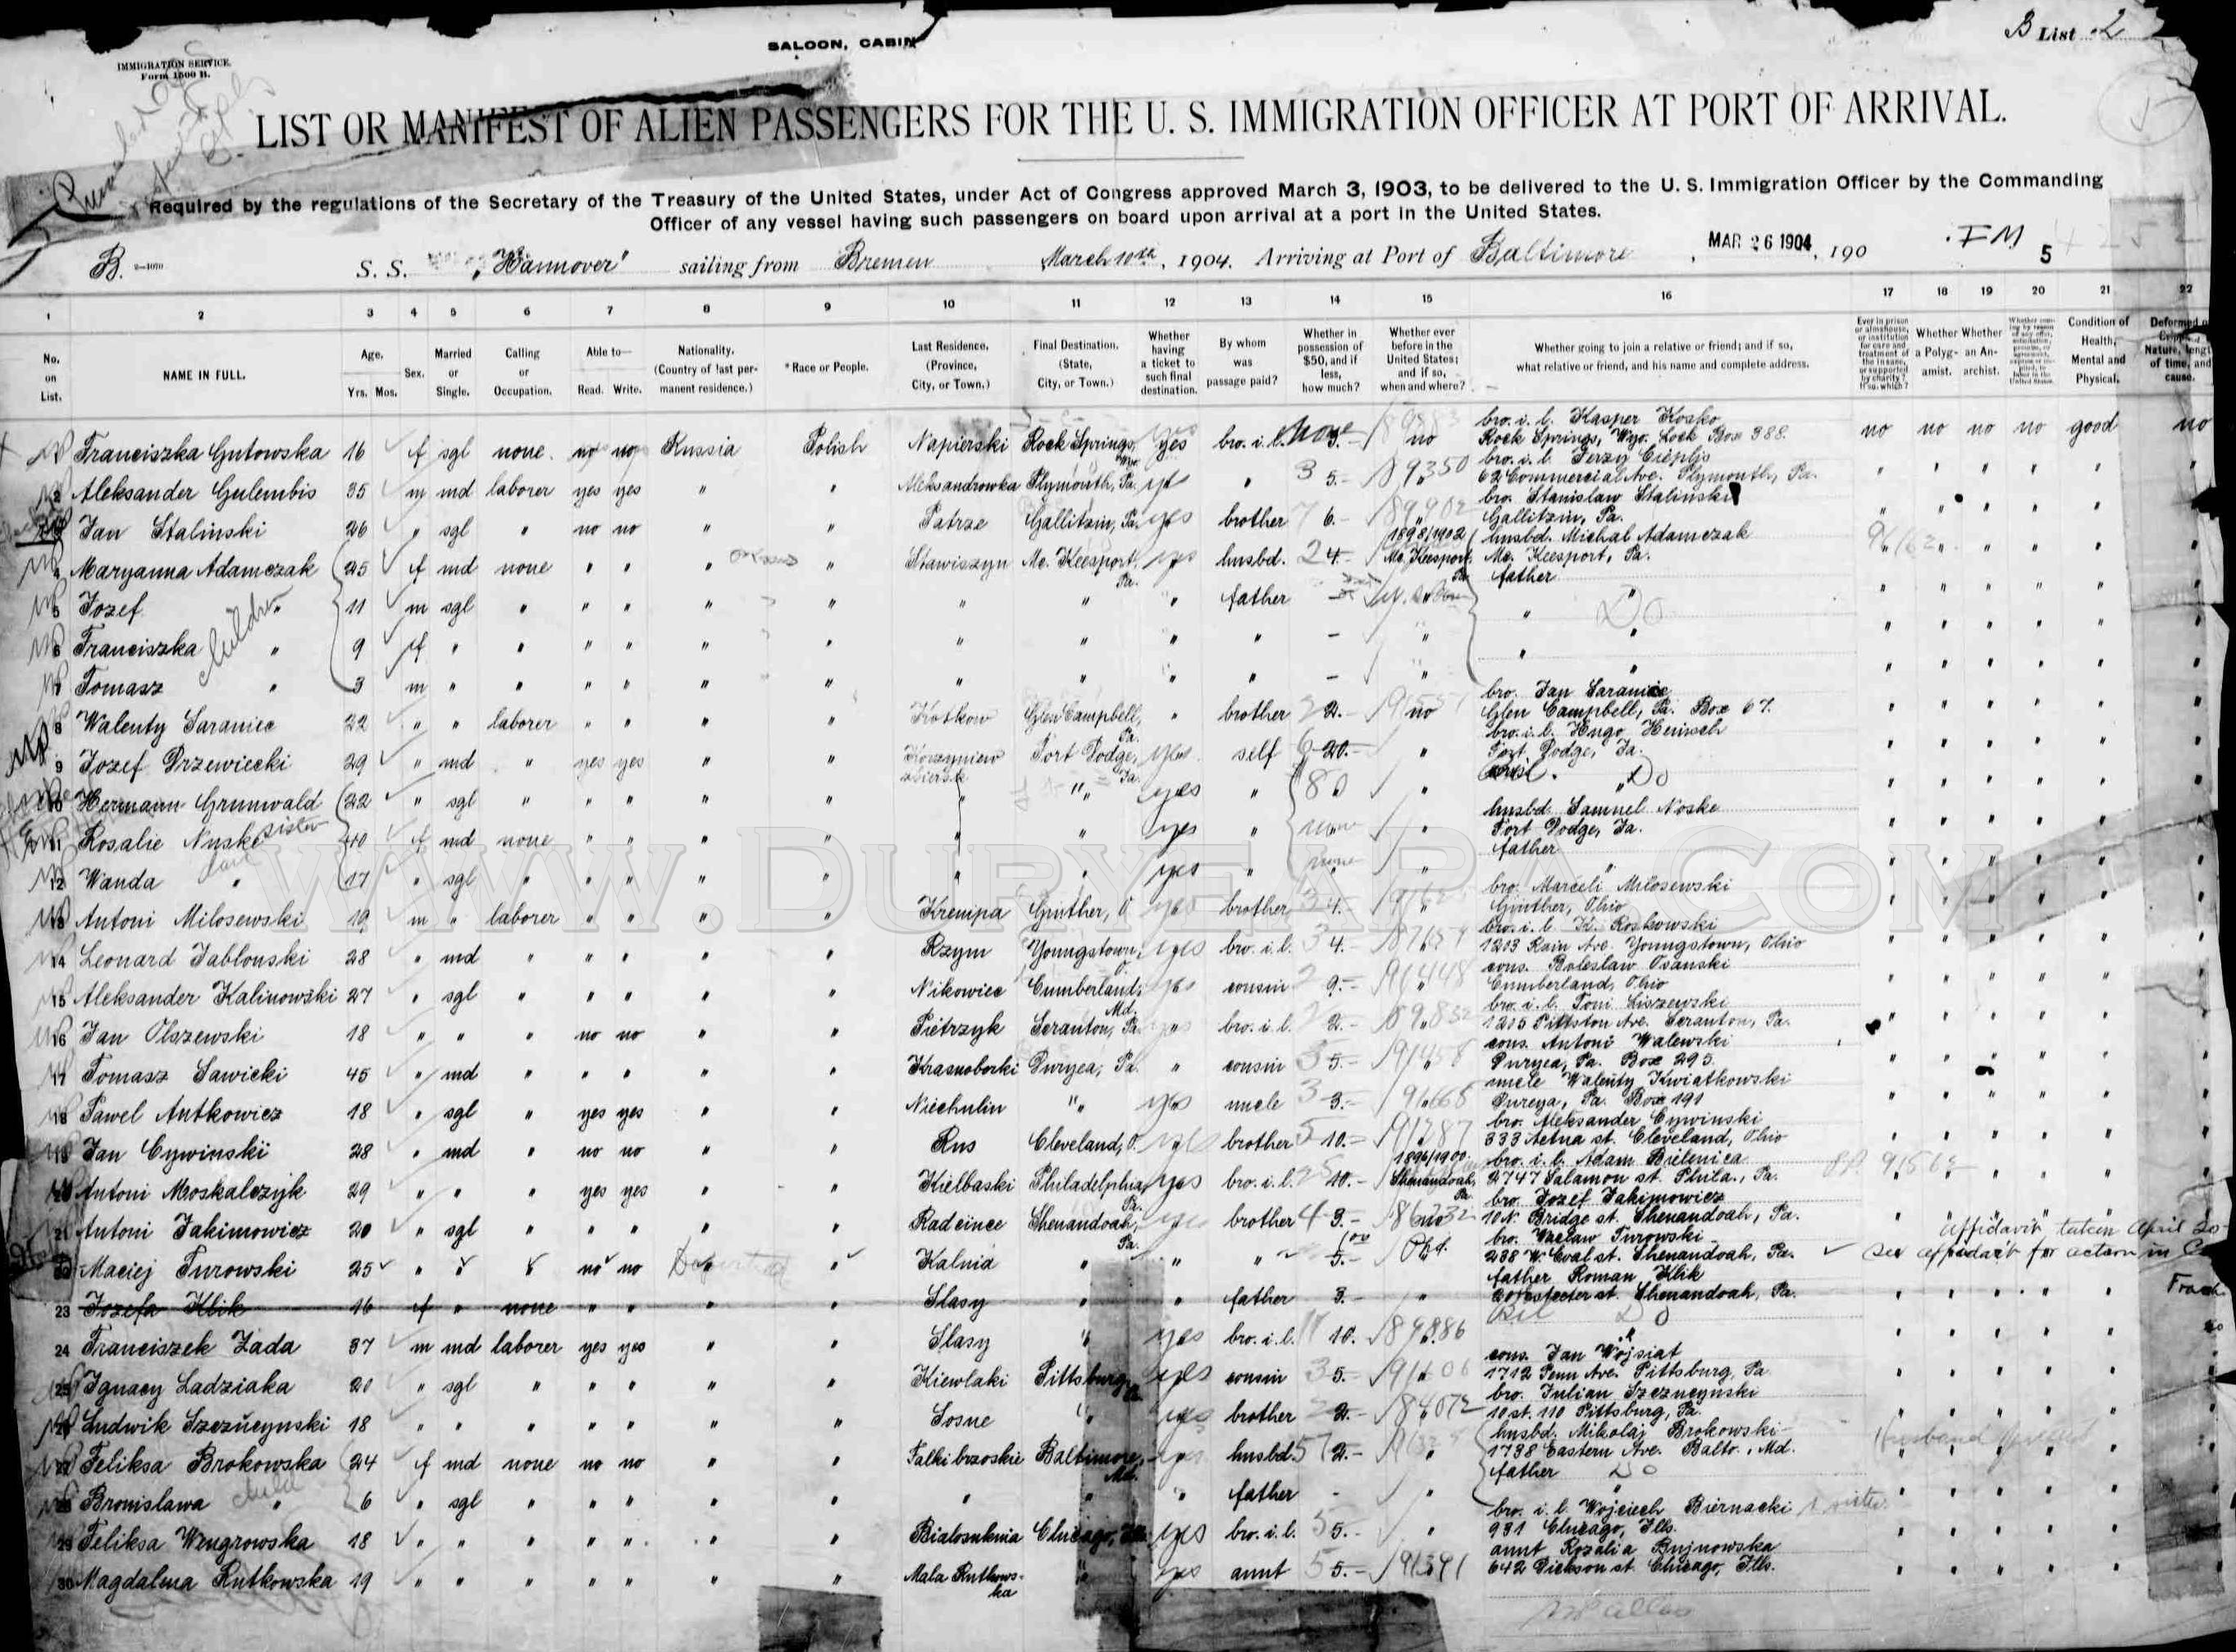 B List 2
SALOON, CABIN
IMMIGRATION SERVICE.
Form 1500 B.
LIST OR MANIFEST OF ALIEN PASSENGERS FOR THE U. S. IMMIGRATION OFFICER AT PORT OF ARRIVAL.
Required by the regulations of the Secretary of the Treasury of the United States, under Act of Congress approved March 3, 1903, to be delivered to the U. S. Immigration Officer by the Commanding
Officer of any vessel having such passengers on board upon arrival at a port in the United States.
B. S. S. "Hannover" sailing from Bremen March 10th, 1904. Arriving at Port of Baltimore, MAR 26 1904, 190 5
1 2 3 4 5 6 7 8 9 10 11 12 13 14 15 16 17 18 19 20 21 22
No. on List. NAME IN FULL. Age. Yrs. Mos. Sex. Married or Single. Calling or Occupation. Able to— Read. Write. Nationality. (Country of last permanent residence.) *Race or People. Last Residence. (Province, City, or Town.) Final Destination. (State, City, or Town.) Whether having a ticket to such final destination. By whom was passage paid? Whether in possession of $50, and if less, how much? Whether ever before in the United States; and if so, when and where? Whether going to join a relative or friend; and if so, what relative or friend, and his name and complete address. Ever in prison or almshouse, or institution for care and treatment of the insane, or supported by charity? If so, which? Whether a Polygamist. Whether an Anarchist. Condition of Health, Mental and Physical. Deformed or Crippled. Nature, length of time, and cause.
1 Franciszka Gutowska 16 f sgl none no no Russia Polish Napierski Rock Springs, Wyo. yes bro. i. l. none no bro. i. l. Kasper Kosko Rock Springs, Wyo. Lock Box 388. no no no no good no
2 Aleksander Gulembis 35 m md laborer yes yes " " Aleksandrowka Plymouth, Pa. yes " 5.- 89350 bro. i. l. Jerzy Cieplis 62 Commercial Ave. Plymouth, Pa.
3 Jan Stalinski 26 " sgl " no no " " Patrze Gallitzin, Pa. yes brother 6.- 89902 bro. Stanislaw Stalinski Gallitzin, Pa.
4 Maryanna Adamczak 25 f md none " " " " Stawiszyn Mc. Keesport, Pa. yes husbd. 24.- 1898/1902 Mc. Keesport, Pa. husbd. Michal Adamczak Mc. Keesport, Pa.
5 Jozef " children 11 m sgl " " " " " " " " father father "
6 Franciszka " 9 f " " " " " " " " " " - " " "
7 Tomasz " 3 m " " " " " " " " " " - " "
8 Walenty Saraniec 22 " " laborer " " " " Kotkow Glen Campbell, Pa. " brother 2.- no bro. Jan Saraniec Glen Campbell, Pa. Box 67.
9 Jozef Drzewiecki 29 " md " yes yes " " Fort Dodge, Ia. yes self 20.- " bro. i. l. Hugo Heinsch Fort Dodge, Ia.
10 Hermann Grunwald 22 " sgl " " " " " " yes " 80 " Do
11 Rosalie Nuske sister 40 f md none " " " " " " yes " none " husbd. Samuel Noske Fort Dodge, Ia.
12 Wanda " 17 " sgl " " " " " " " yes " none " father "
13 Antoni Milosewski 19 m " laborer " " " " Krempa Ginther, O. yes brother 4.- " bro. Marceli Milosewski Ginther, Ohio
14 Leonard Jablonski 28 " md " " " " " Rzym Youngstown, O. yes bro. i. l. 4.- " bro. i. l. K. Roskowski 1203 Rain Ave. Youngstown, Ohio
15 Aleksander Kalinowski 27 " sgl " " " " " Nikowiec Cumberland, Md. yes cousin 9.- 91448 cons. Boleslaw Osanski Cumberland, Ohio
16 Jan Olszewski 18 " " " no no " " Pietrzyk Scranton, Pa. yes bro. i. l. 2.- 89832 bro. i. l. Toni Liszewski 1215 Pittston Ave. Scranton, Pa.
17 Tomasz Sawicki 45 " md " " " " " Krasnoborki Duryea, Pa. " cousin 5.- 91458 cons. Antoni Walewski Duryea, Pa. Box 295.
18 Pawel Antkowicz 18 " sgl " yes yes " " Niechulin " yes uncle 3.- uncle Walenty Kwiatkowski Dureya, Pa. Box 191
19 Jan Cywinski 28 " md " no no " " Rus Cleveland, O. yes brother 10.- bro. Aleksander Cywinski 333 Aetna st. Cleveland, Ohio
20 Antoni Moskalczyk 29 " " " yes yes " " Kielbaski Philadelphia, Pa. yes bro. i. l. 10.- 1896/1900. Shenandoah, Pa. bro. i. l. Adam Bielenica 2747 Salamon st. Phila., Pa.
21 Antoni Jakimowicz 20 " sgl " " " " " Radeince Shenandoah, Pa. yes brother 3.- no bro. Jozef Jakimowicz 10 N. Bridge st. Shenandoah, Pa.
22 Maciej Turowski 25 " " " no no Deported " Kalnia " " " 5.- bro. Waclaw Turowski 238 W. Coal st. Shenandoah, Pa. Affidavit taken April 20 See affidavit for action in
23 Jozefa Klik 16 f " none " " " " Slasy " " father 3.- " father Roman Klik st. Shenandoah, Pa.
24 Franciszek Zada 37 m md laborer yes yes " " Slasy " yes bro. i. l. 10. Do
25 Ignacy Ladziaka 20 " sgl " " " " " Kiewlaki Pittsburg, Pa. yes cousin 5.- cons. Jan Wojsiat 1712 Penn Ave. Pittsburg, Pa
26 Ludwik Szezucynski 18 " " " " " " " Sosne " yes brother 2.- 84072 bro. Julian Szezucynski 10 st. 110 Pittsburg, Pa.
27 Feliksa Brokowska 24 f md none no no " " Falki brzoskie Baltimore, Md. yes husbd. 2.- " husbd. Mikolaj Brokowski 1738 Eastern Ave. Balto., Md.
28 Bronislawa " child 6 " sgl " " " " " " " " father - " father Do
29 Feliksa Wengrowska 18 " " " " " " " Bialosuknia Chicago, Ills. yes bro. i. l. 5.- " bro. i. l. Wojciech Biernacki & sister 931 Chicago, Ills.
30 Magdalena Rutkowska 19 " " " " " " " Mala Rutkowska " yes aunt 5.- 91391 aunt Rozalia Bujnowska 642 Dickson st. Chicago, Ills.
WWW.DURYEAPA.COM